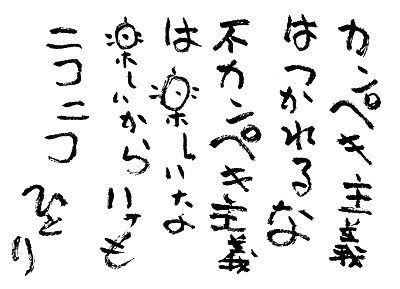 カンペキ主義
はつかれるな
不カンペキ主義
は楽しいなぁ
楽しいからいつも
ニコニコ
ひとり